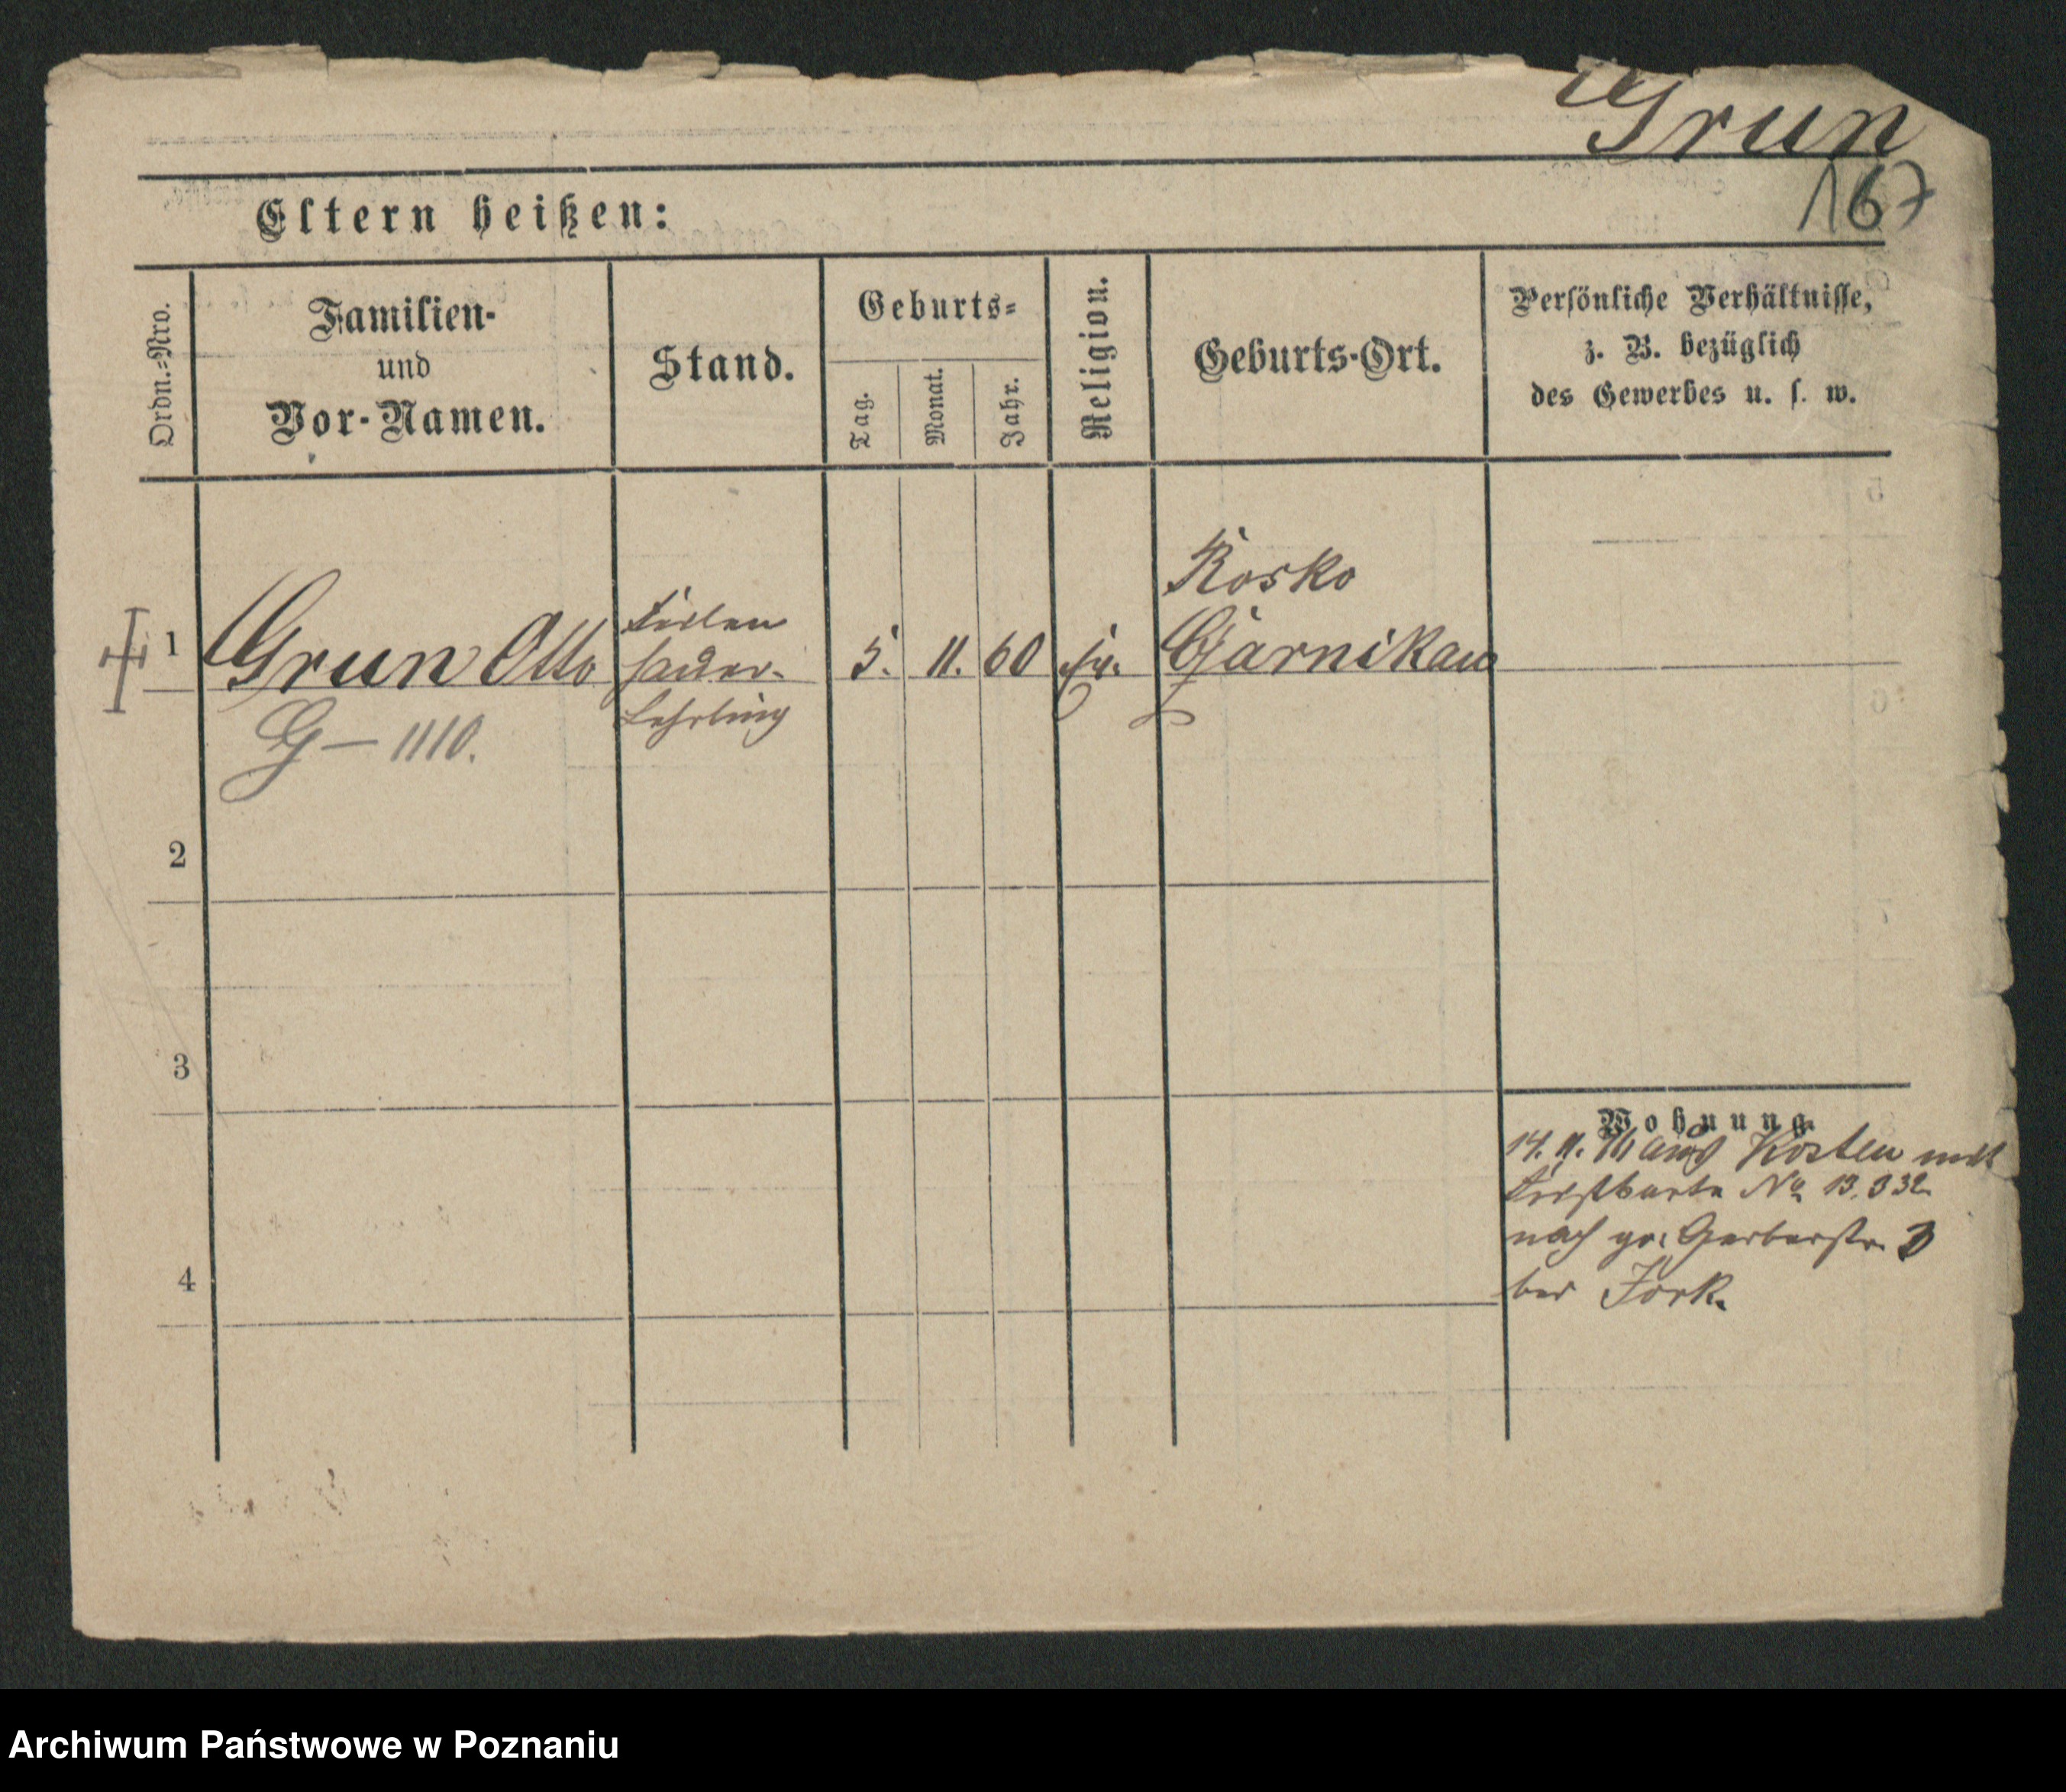 Grun
167
Eltern heißen:
Ordn.=Nro.
Familien-
und
Vor-Namen.
Stand.
Geburts=
Tag.
Monat.
Jahr.
Religion.
Geburts-Ort.
Persönliche Verhältnisse,
z. B. bezüglich
des Gewerbes u. s. w.
1
Grun Otto
Feilen
hauer-
Lehrling
5. 11. 60
Rosko
G-1110.
2
3
4
Wohnung.
14. 11. aus Kosten mit
No 13,332
nach gr. Gerberstr. 3
bei Jork.
Archiwum Państwowe w Poznaniu